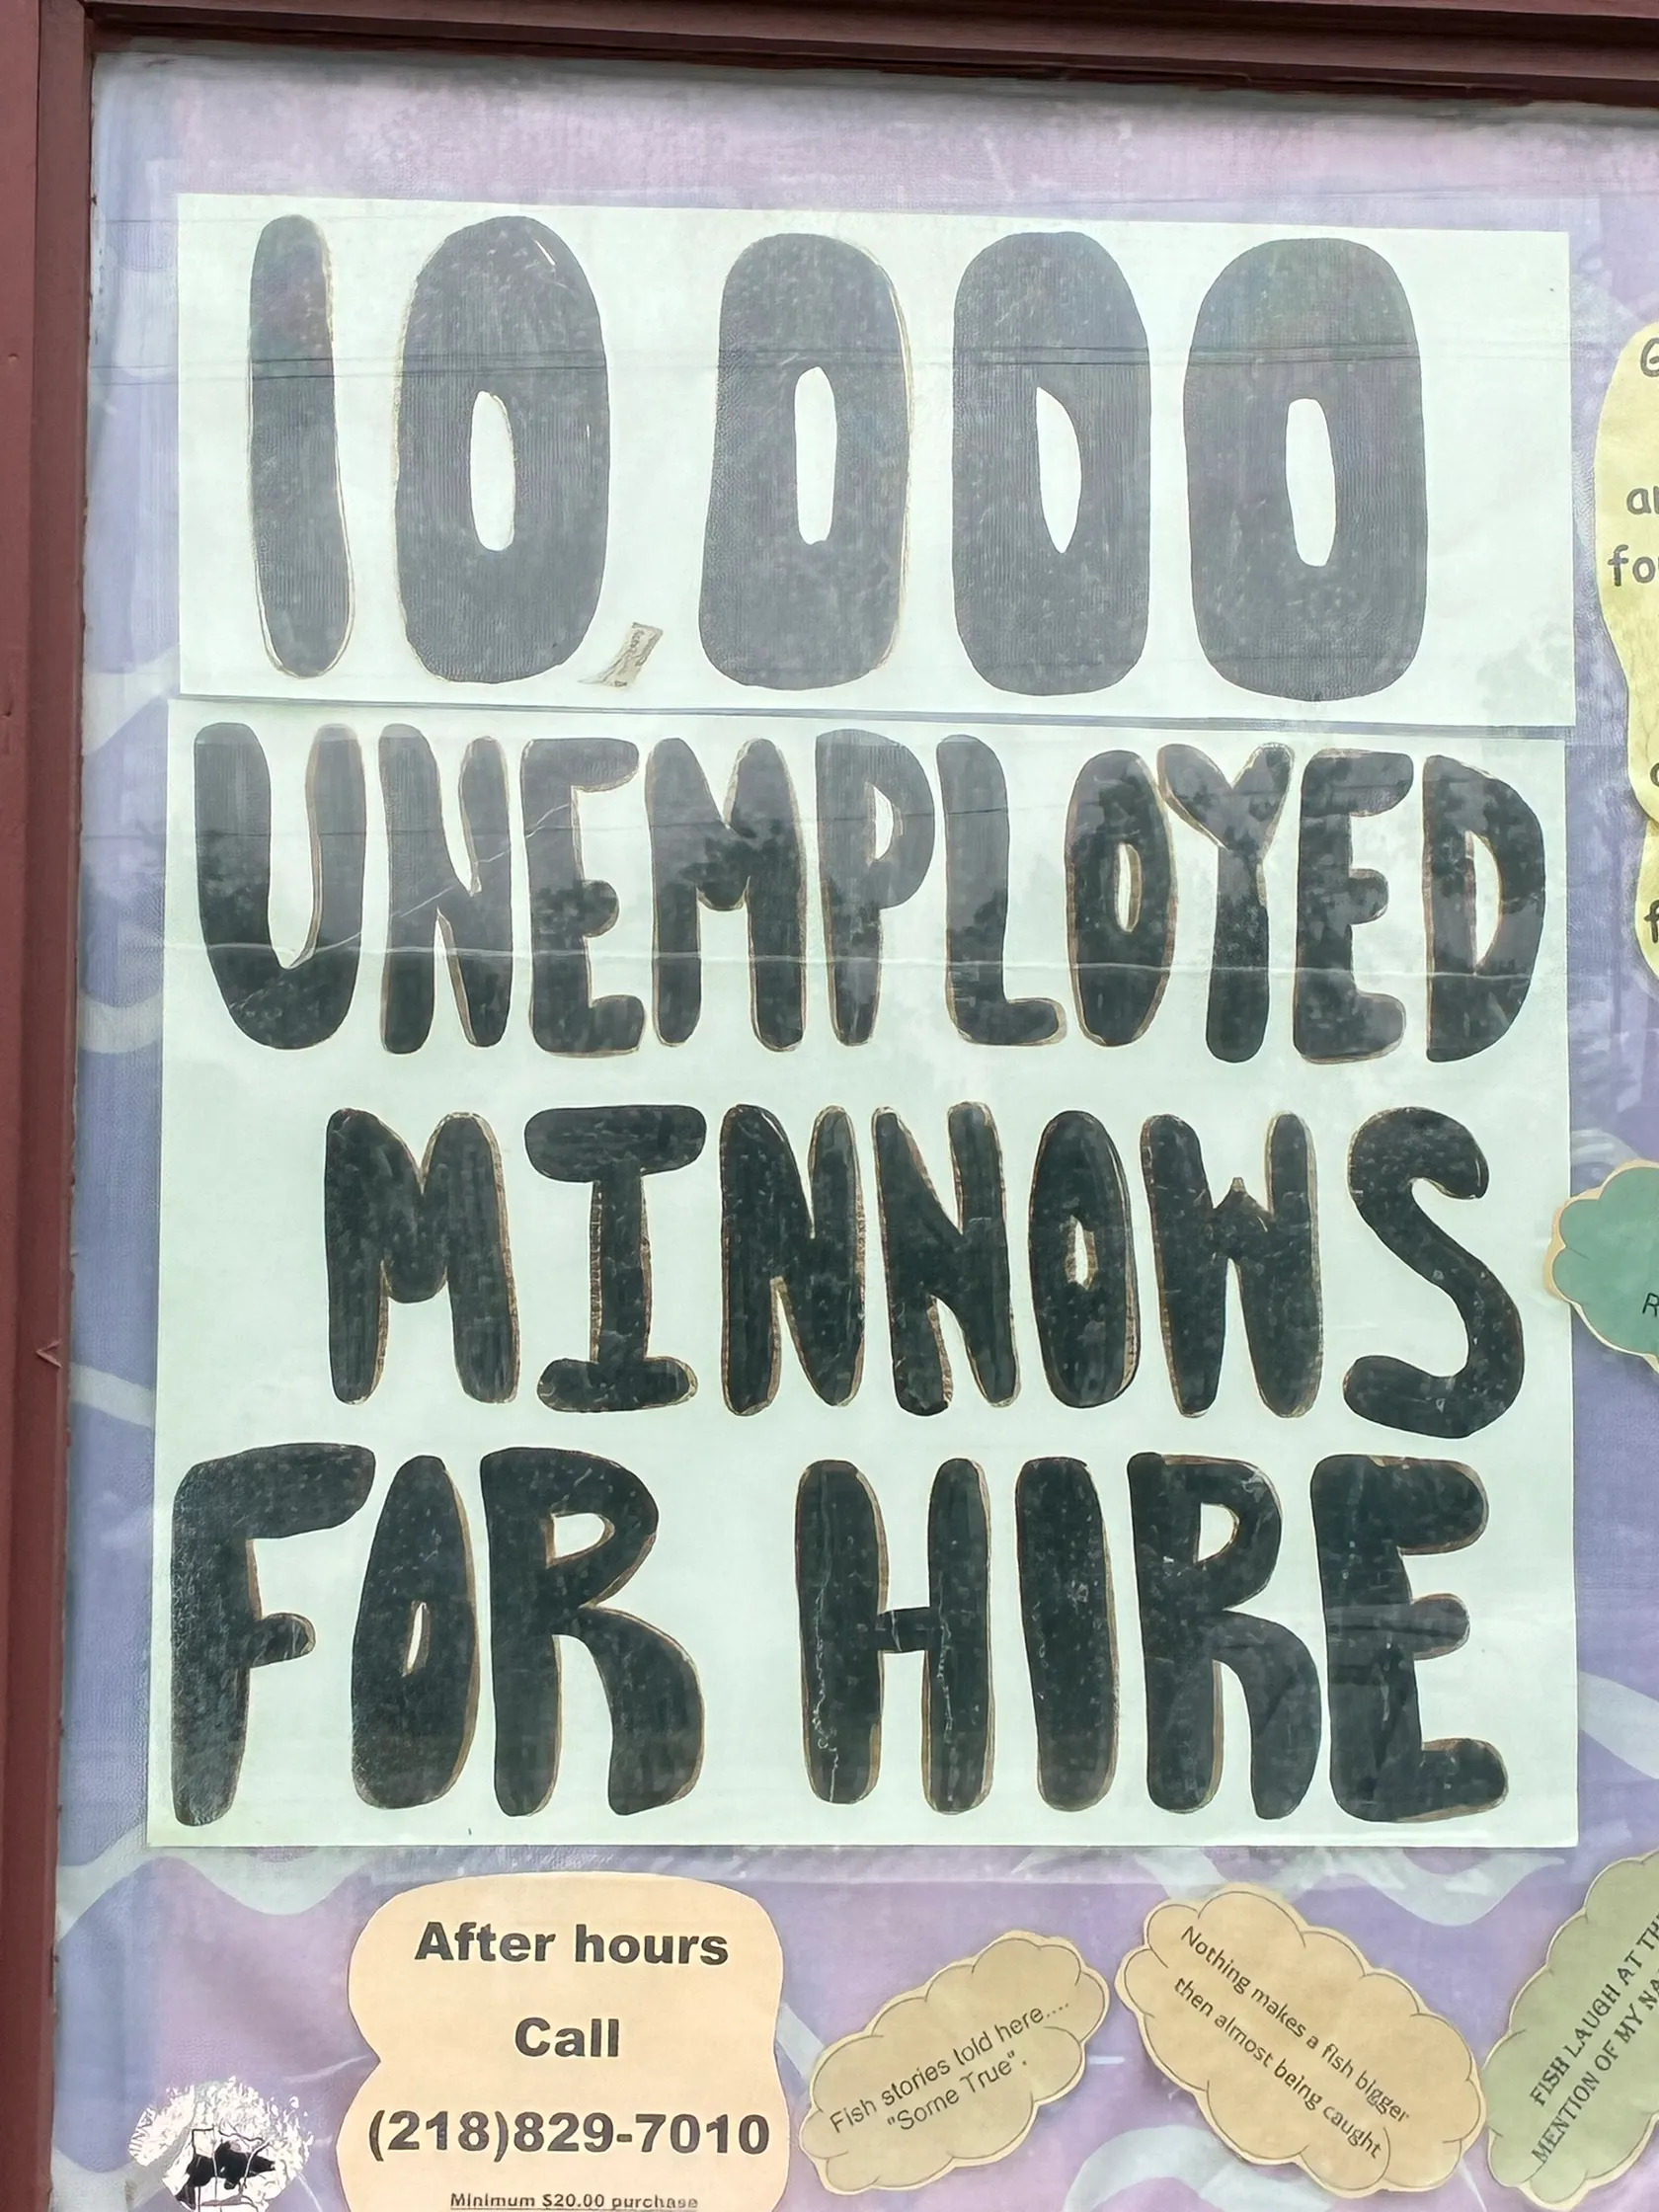 10,000
UNEMPLOYED
MINNOWS
FOR HIRE
After hours
Call
(218)829-7010
Minimum $20.00 purchase
Fish stories told here....
"Some True".
Nothing makes a fish bigger
then almost being caught
FISH LAUGH AT THE
MENTION OF MY